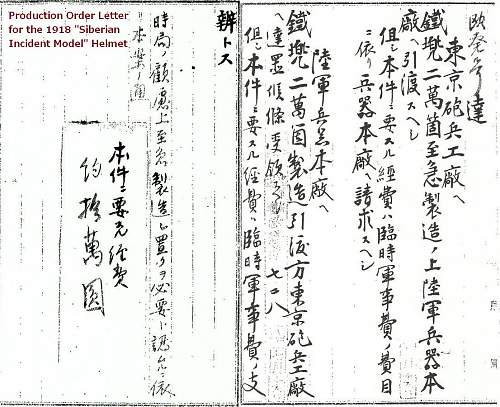 Production Order Letter
for the 1918 "Siberian
Incident Model" Helmet
達
東京砲兵工廠ヘ
鐵兜二萬箇至急製造ノ上陸軍兵器本
廠ヘ引渡スヘシ
但シ本件ニ要スル經費ハ臨時軍事費ノ費目
ニ依リ兵器本廠ヘ請求スヘシ
陸軍兵器本廠ヘ
鐵兜二萬箇製造引渡方東京砲兵工廠
ヘ達置候條受領スヘシ
七二八
但シ本件ニ要スル經費ハ臨時軍事費ノ支
辨トス
時局ノ顧慮上至急製造シ置クヲ必要ト認ムルニ依
リ本案ノ通
本件ニ要スル経費
約拾萬圓